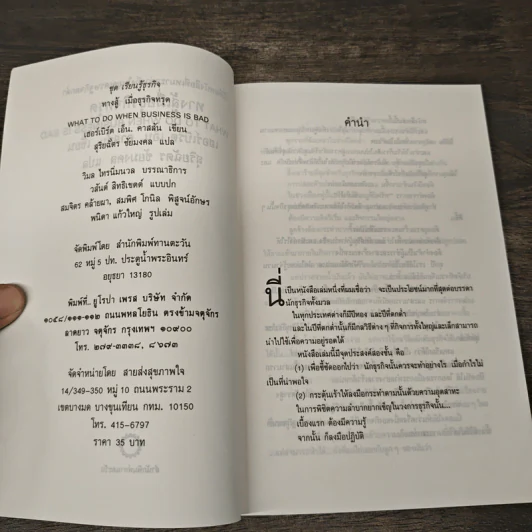 ชุด เรียนรู้ธุรกิจ
ทางสู้ เมื่อธุรกิจทรุด
WHAT TO DO WHEN BUSINESS IS BAD
เฮอร์เบิร์ต เอ็น. คาสสัน เขียน
สุริยฉัตร ชัยมงคล แปล
วิมล ไทรนิ่มนวล บรรณาธิการ
วสันต์ สิทธิเขตต์ แบบปก
สมจิตร คล้ายมา, สมพิศ โกนิล พิสูจน์อักษร
พนิดา แก้วใหญ่ รูปเล่ม
จัดพิมพ์โดย สำนักพิมพ์ทานตะวัน
62 หมู่ 5 ปท. ประตูน้ำพระอินทร์
อยุธยา 13180
พิมพ์ที่ ยูโรปา เพรส บริษัท จำกัด
๑๐๕๔/๑๑๑-๑๑๒ ถนนพหลโยธิน ตรงข้ามจตุจักร
ลาดยาว จตุจักร กรุงเทพฯ ๑๐๙๐๐
โทร. ๒๗๙-๓๓๓๘, ๘๖๗๓
จัดจำหน่ายโดย สายส่งสุขภาพใจ
14/349-350 หมู่ 10 ถนนพระราม 2
เขตบางมด บางขุนเทียน กทม. 10150
โทร. 415-6797
ราคา 35 บาท
คำนำ
นี่ เป็นหนังสือเล่มหนึ่งที่ผมเชื่อว่า จะเป็นประโยชน์มากที่สุดต่อบรรดา
นักธุรกิจทั้งมวล
ในทุกประเทศต่างก็มีปีทอง และปีที่ตกต่ำ
และในปีที่ตกต่ำนั้นก็มีกลวิธีต่าง ๆ ที่กิจการทั้งใหญ่และเล็กสามารถ
นำไปใช้เพื่อความอยู่รอดได้
หนังสือเล่มนี้มีจุดประสงค์สองชั้น คือ
(๑) เพื่อชี้ชัดออกไปว่า นักธุรกิจนั้นควรจะทำอย่างไร เมื่อกำไรไม่
เป็นที่น่าพอใจ
(๒) กระตุ้นเร้าให้ลงมือกระทำตามนั้นด้วยความอุตสาหะ
ในการพิชิตความลำบากยากเข็ญในวงการธุรกิจนั้น...
เบื้องแรก ต้องมีความรู้
จากนั้น ก็ลงมือปฏิบัติ